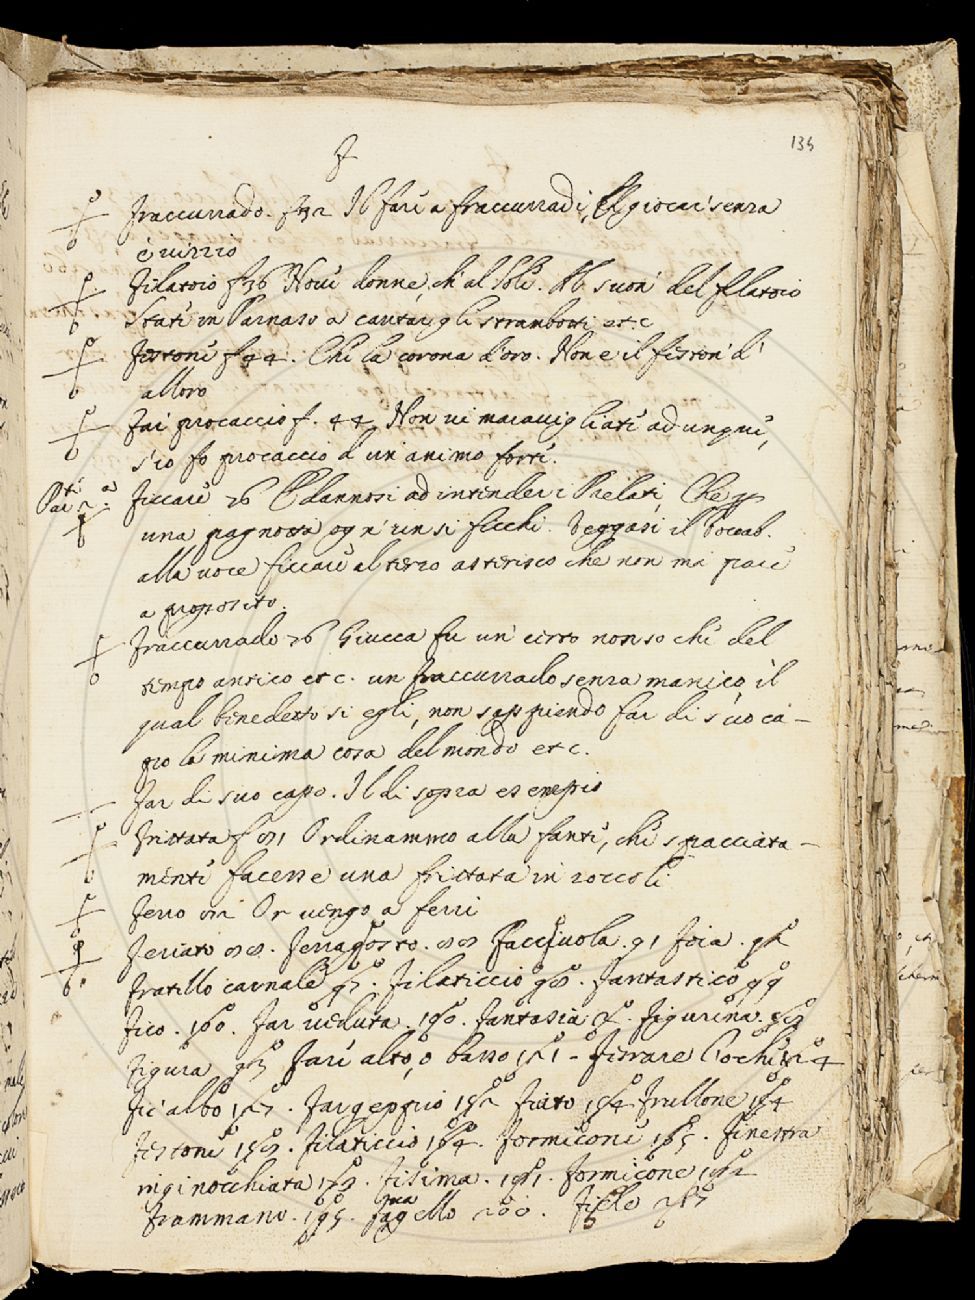 135
F
Fraccurrado. f 32 Il fare a fraccurradi, El giocar senza
è vizzio
Filatoio f 36 Nove donne, ch' al Sole. Al suon' del filatoio
State in Parnaso a cantar gli strambotti etc
Festone f 44. Chi la corona d'oro. Non è il feston' d'
alloro
Far procaccio f. 44 Non vi maravigliate adunque,
s'io fo procaccio d'un animo forte.
Ficcare 26 E dannosi ad intender i Prelati, Che
una pagnotta ogn' un si ficchi. Veggasi il Vocab.
alla voce ficcare al terzo asterisco che non mi pare
a proposito.
Fraccurrado 26 Giucca fu un' certo non so che del
tempo antico etc. un fraccurrado senza manico il
qual benedetto si egli, non sappiendo far di suo ca-
po la minima cosa del mondo etc.
Far di suo capo. Il di sopra es empio
Frittata f 81 Ordinammo alla fante, che spacciata-
mente facesse una frittata in zoccoli
Ferro Or vengo a ferri
Feriato Ferragosto. Facciuola. 91 Foia
Fratello carnale 97. Filaticcio 98. Fantastico 99
Fico. 100. Far veduta. Fantasia Figurina.
Figura Fare alto, o basso 121 - Fierare
Fic' albo 127. Far geppo Fiuto Frullone 154
Festone Filaticcio 164. Formicone 165. Finestra
inginocchiata Fisima. Formicone
Frammano. 195. Fagello 200. Fiele